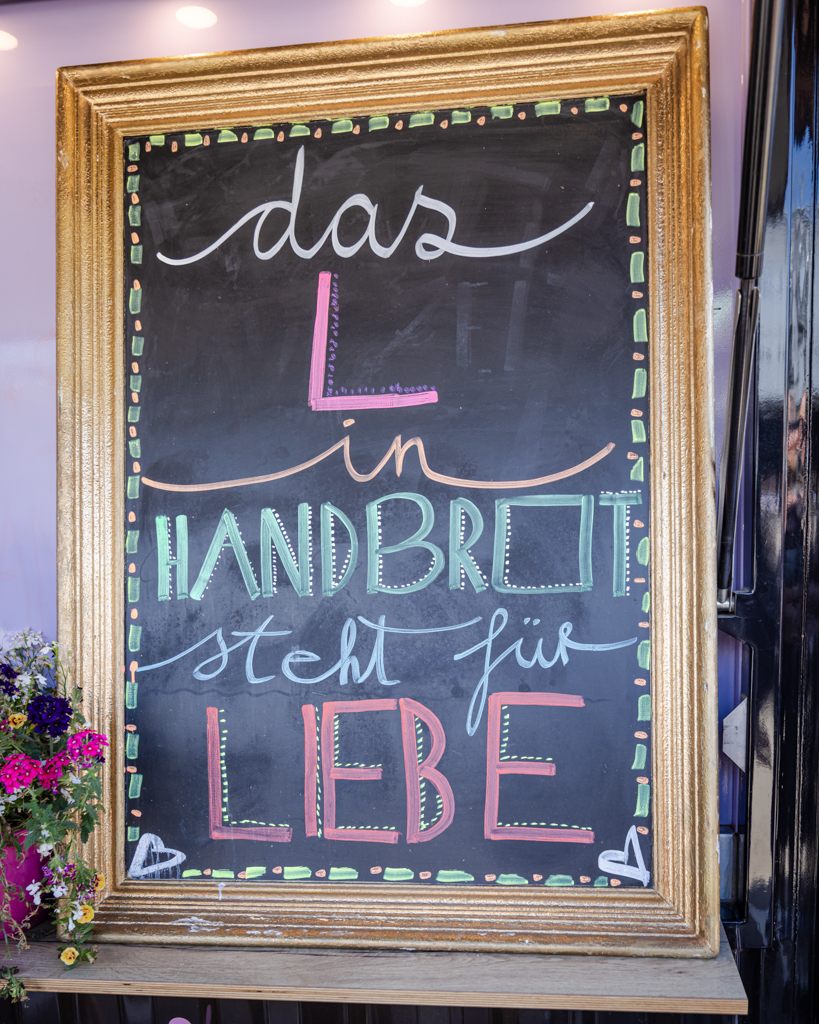 das
L
in
HANDBROT
steht für
LIEBE